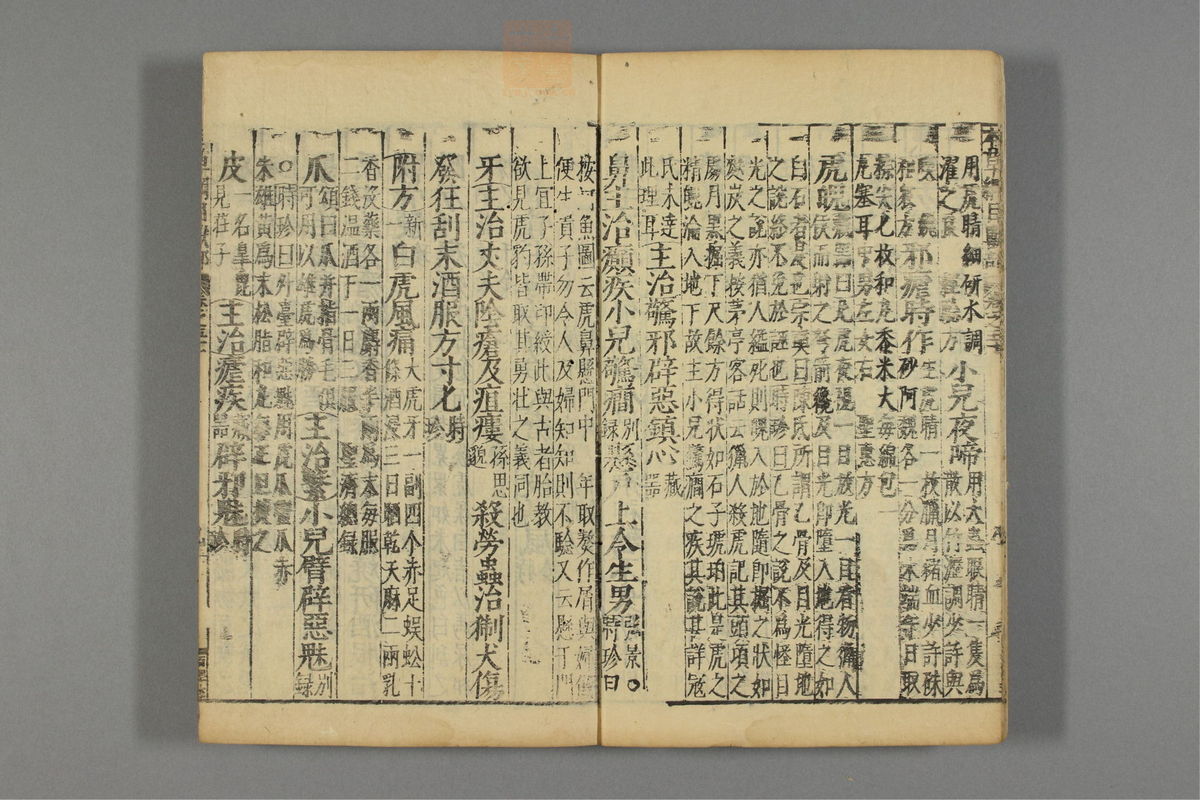 用虎睛細研水調
濯之
小兒夜啼
用大蟲眼睛一隻為
散以竹瀝調少許與
邪瘧時作
生虎睛一枚臘月猪血少許硃
砂阿魏各一分為末端午日取
粽尖七枚和丸黍米大每綿包
虎塞耳中男左女右
聖惠方
虎魄
藏器曰凡虎夜視一目放光一目看物獵人
候而射之弩箭纔及目光即墮入地得之如
白石者是也宗奭曰陳氏所謂乙骨及目光墮地
之說終不免於誣也時珍曰乙骨之說不為怪目
光之說亦猶人縊死則魄入於地隨即掘之狀如
麩炭之義按茅亭客話云獵人殺虎記其頭項之
處月黑掘下尺餘方得狀如石子琥珀此是虎之
精魄淪入地下故主小兒驚癇之疾其說甚詳寇
氏未達
此理耳
主治驚邪辟惡鎮心
藏器
鼻主治癲疾小兒驚癇
別錄
懸戶上令生男
弘景○
時珍曰
按
魚圖云虎鼻懸門中一年取熬作屑與婦飲
便生貴子勿令人及婦知知則不驗又云懸于門
上宜子孫帶印綬此與古者胎教
欲見虎豹皆取其勇壯之義同也
牙主治丈夫陰瘡及疽瘻
孫思邈
殺勞蟲治猘犬傷
發狂刮末酒服方寸匕
時珍
附方
新一
白虎風痛
大虎牙一副四个赤足蜈蚣十
條酒浸三日晒乾天麻二兩乳
香沒藥各一兩麝香半兩為末每服
二錢溫酒下一日三服
聖濟總錄
爪
頌曰爪并指骨毛俱
可用以雄虎為勝
主治繫小兒臂辟惡魅
別錄
○時珍曰外臺辟惡魅用虎爪蟹爪赤
朱雄黃為末松脂和丸每正旦焚之
皮
一名皋毗
見莊子
主治瘧疾
藏器
辟邪魅
時珍